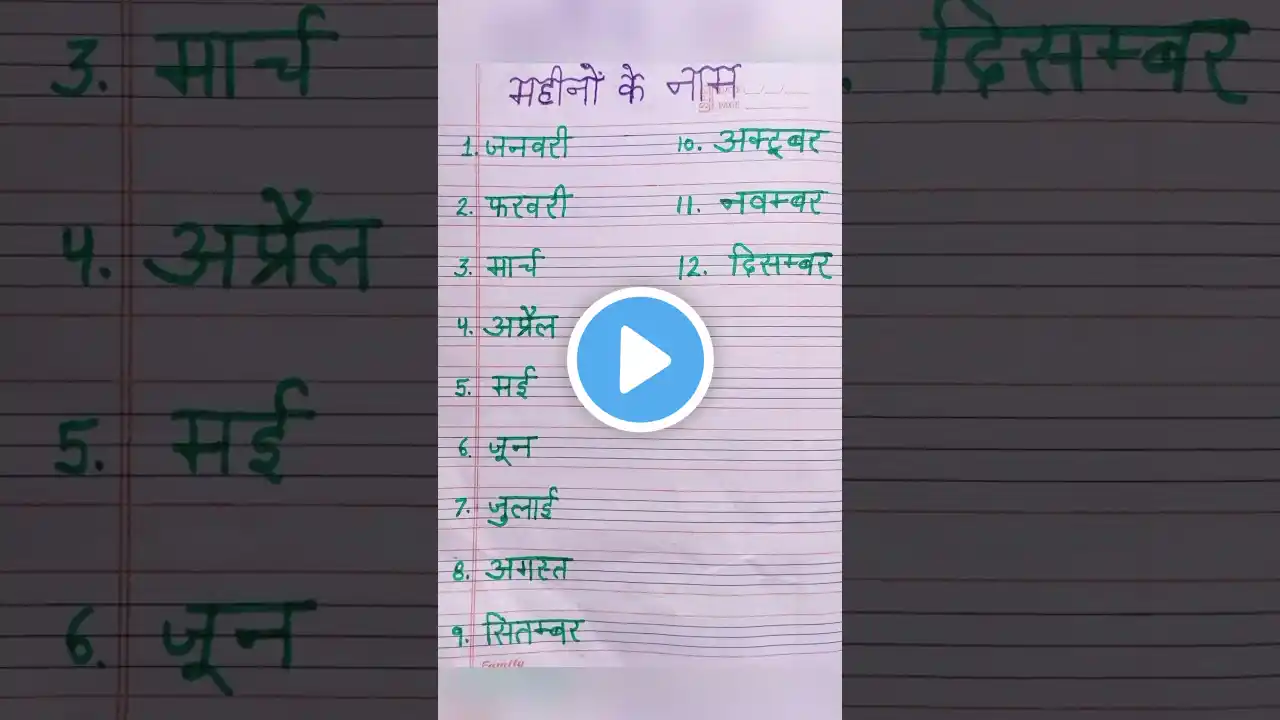 महीनों के नाम
1. जनवरी
2. फरवरी
3. मार्च
4. अप्रैल
5. मई
6. जून
7. जुलाई
8. अगस्त
9. सितम्बर
10. अक्टूबर
11. नवम्बर
12. दिसम्बर
3. मार्च
4. अप्रैल
5. मई
6. जून
. दिसम्बर